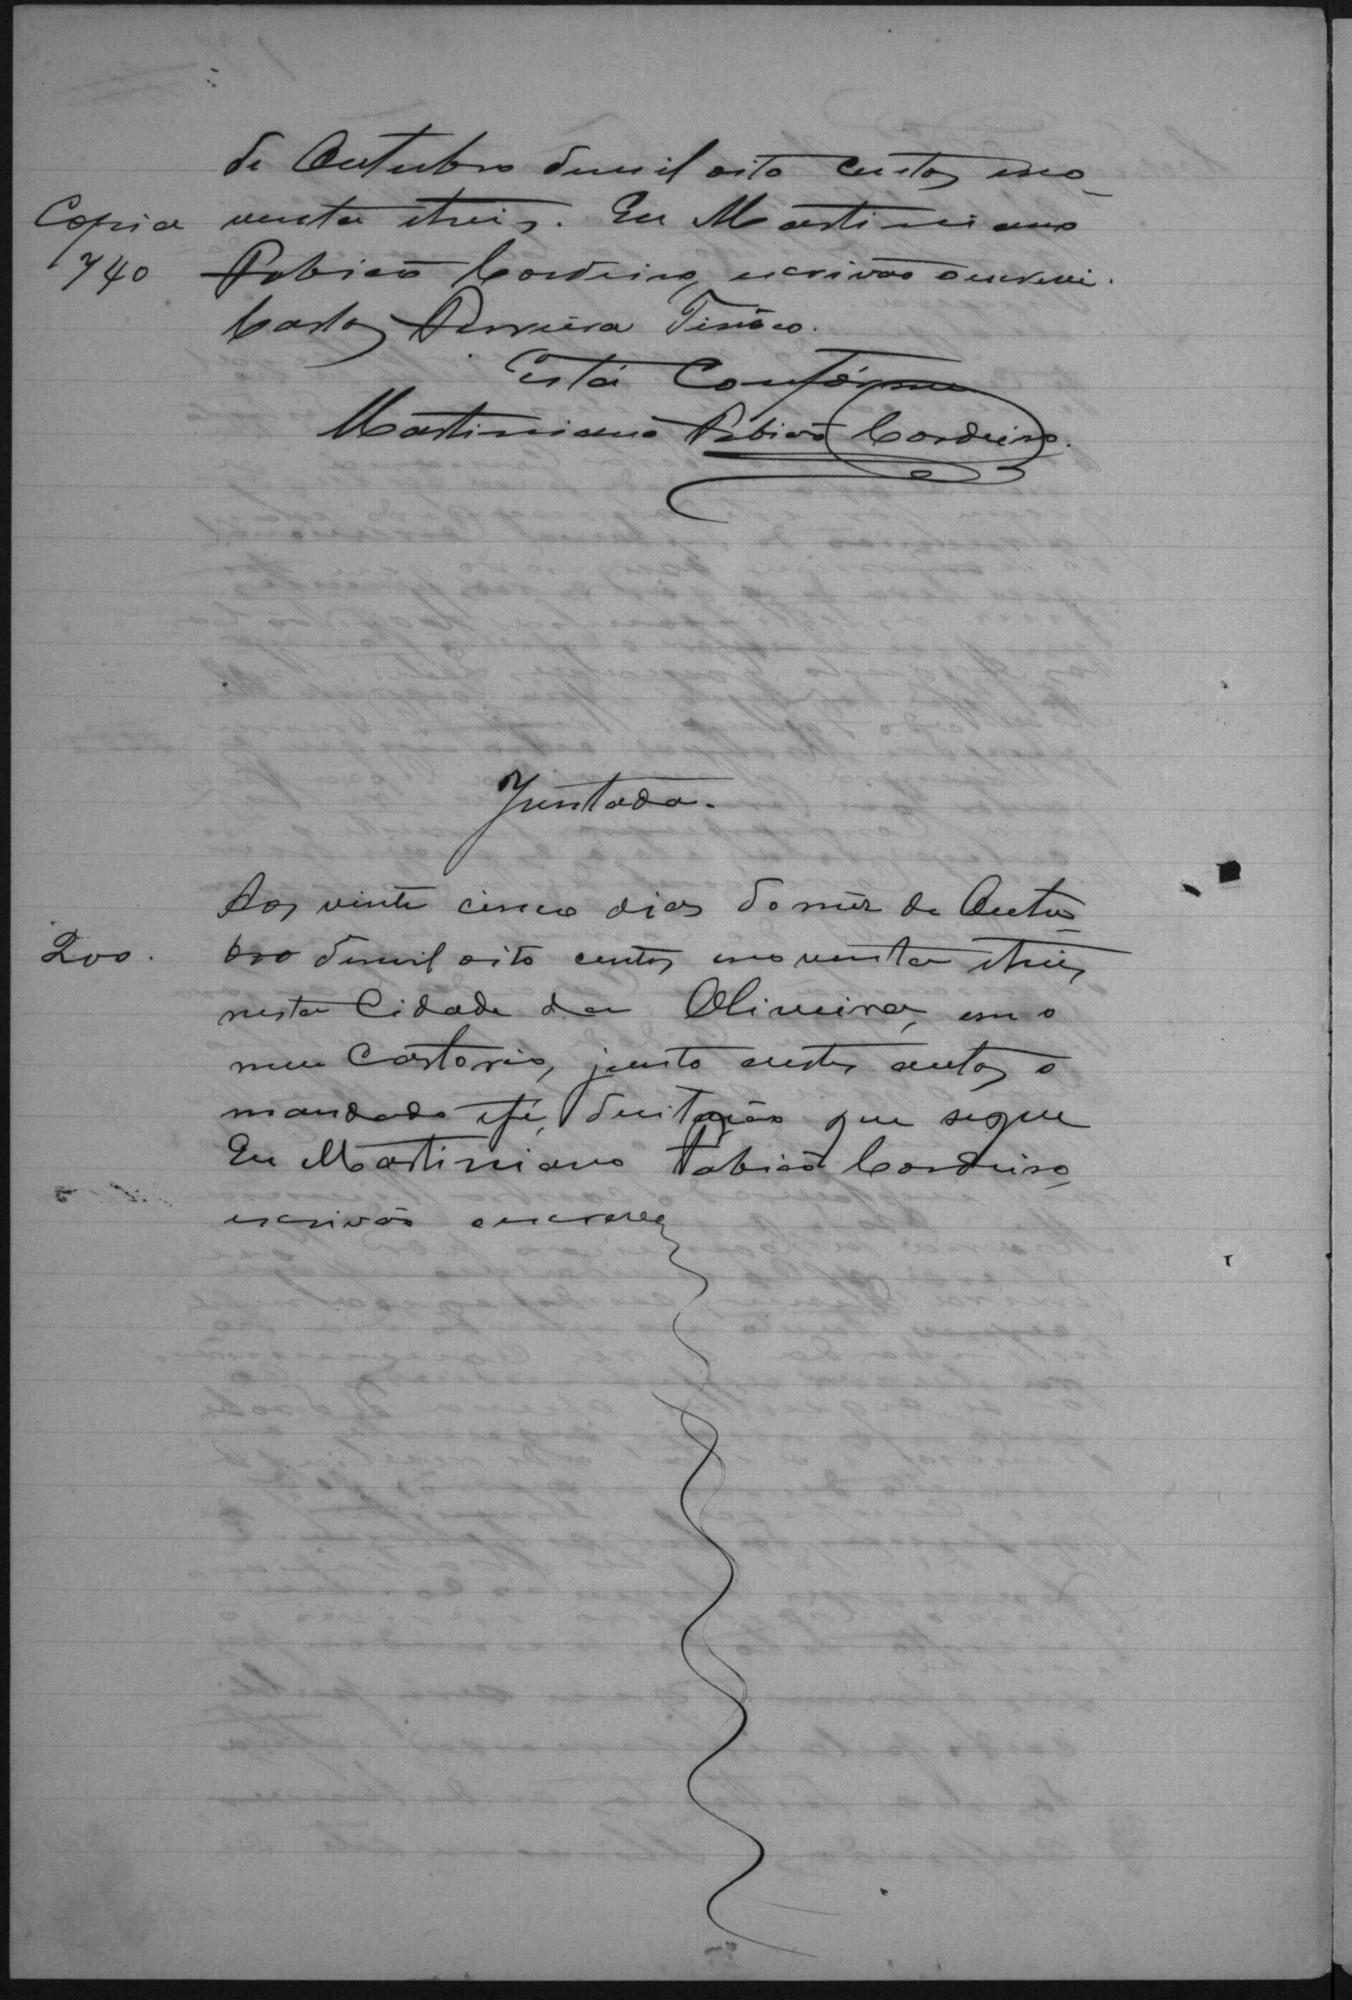 de Outubro demil oito centos eno-
Copia venta etreis. Eu Martiniano
740 Fabião Cordeiro, escrivão oescrevi.
Carlos Ferreira Tinôco.
Está Confórme
Martiniano Fabião Cordeiro.
Juntada.
Aos vinte cinco dias domêz de Outu-
200. bro demil oito centos enoventa etreis
nesta Cidade da Oliveira, em o
meu Cartorio, junto aestes autos o
mandado efé, decitação que segue
Eu Martiniano Fabião Cordeiro,
escrivão oescrevy